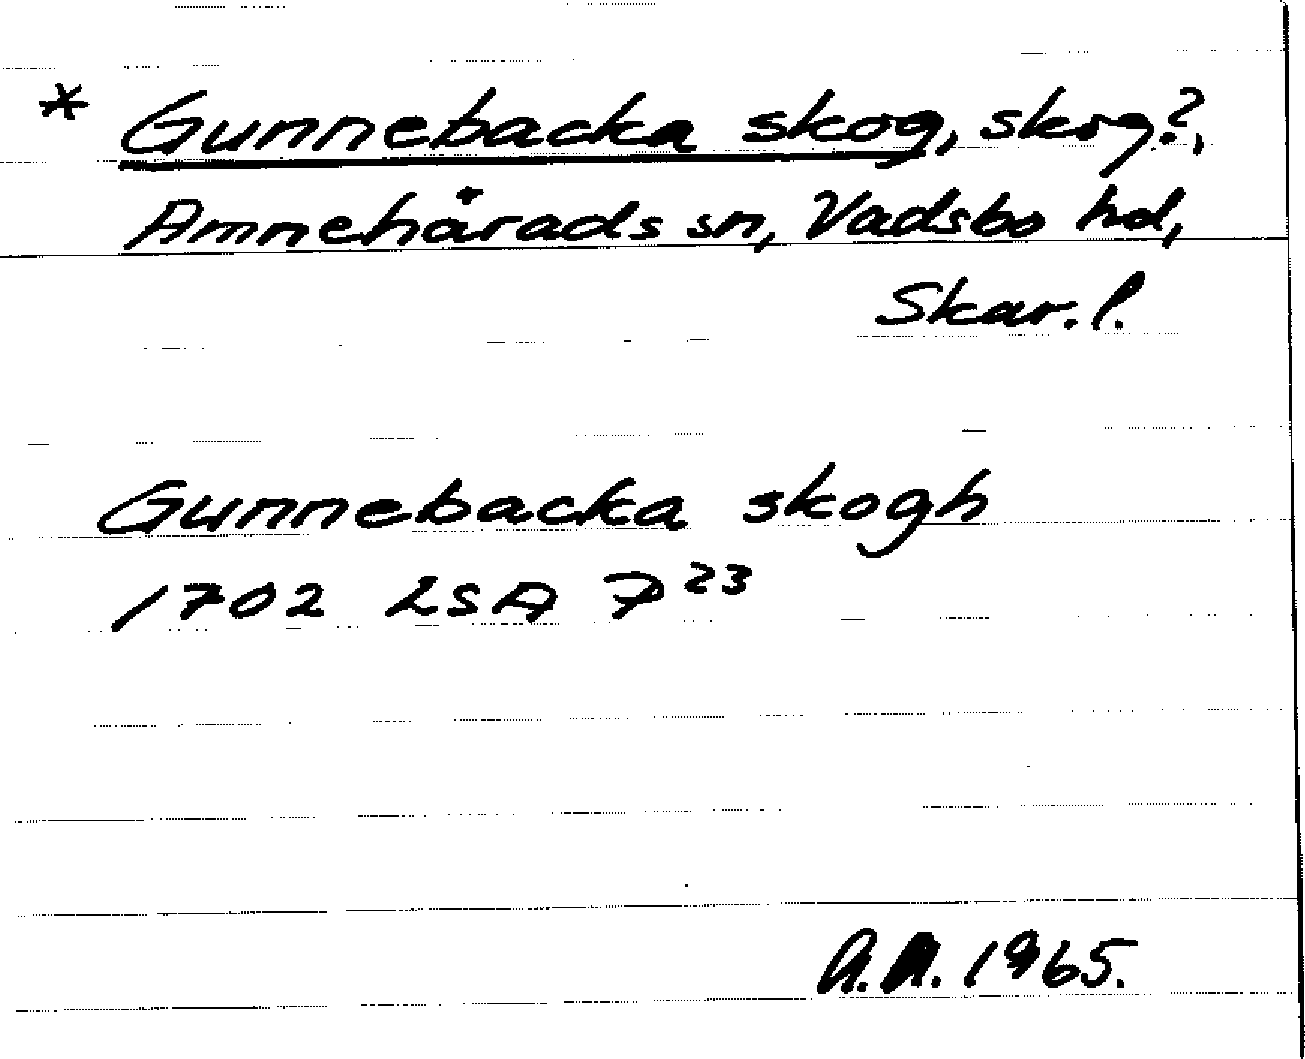 * Gunnebacka skog, skog?,
Amnehårads sn, Vadsbo hd,
Skar. l.
Gunnebacka skogh
1702 LSA P²³
A.A. 1965.